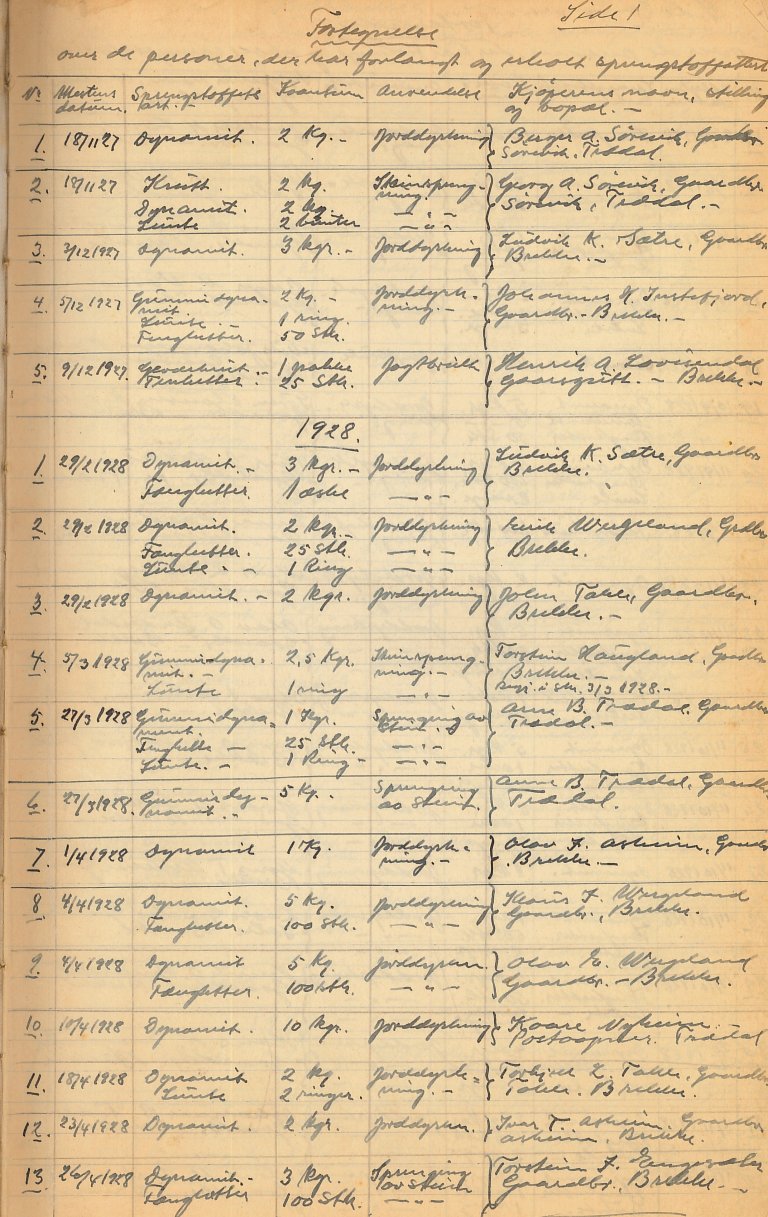 Side 1
Fortegnelse
over de personer, der har forlangt og erholt sprengstoffattest
Nr. Attestens datum. Sprengstoffets art. - Kvantum Anvendelse Kjøperens navn, stilling og bopæl. -
1. 18/11 27 Dynamit. 2 Kg. - Jorddyrkning Birger A. Sørevik, Gaardbr.
Sørevik. Trædal.
2. 18/11 27 Krutt. 2 Kg. Stensprengning. Georg A. Sørevik, Gaardbr.
Dynamit. 2 kg. — " — Sørevik, Trædal. -
Lunte 2 bunter — " —
3. 3/12 1927 Dynamit. 3 kgr. - Jorddyrkning Ludvik K. Sætre, Gaardbr.
Brekke. -
4. 5/12 1927 Gummidyna- 2 Kg. - Jorddyrk- Johannes H. Instefjord,
mit ning. - Gaardbr. - Brekke. -
Lunte. - 1 ring.
Fenghetter. 50 Stk.
5. 9/12 1927. Geværkrutt. - 1 pakke Jagtbruk Henrik A.
Fenhetter. 25 Stk. Brekke. -
1928.
1 29/2 1928 Dynamit. - 3 Kgr. - Jorddyrkning Ludvik K. Sætre, Gaardbr.
Fænghetter. 1 æske — " — Brekke.
2 29/2 1928 Dynamit. 2 kgr. - Jorddyrkning Eirik Wergeland, Grdbr.
Fænghetter. 25 Stk. — " — Brekke.
Lunte - - 1 Ring — " —
3. 29/2 1928 Dynamit. - 2 kgr. Jorddyrkning John Takle, Gaardbr.
Brekke. -
4. 5/3 1928 Gummidyna- 2,5 Kgr. Stenspreng- Torstein Haugland, Gaardbr.
mit. - ning. - Brekke. -
Lunte 1 ring — " — 3/3 1928. -
5. 27/3 1928 Gummidyna- 1 Kgr. Sprengning av Anne B. Trædal, Gaardbr.
mit. sten. Trædal. -
Fenghette - 25 Stk. — " —
Lunte. - 1 Ring - — " —
6. 27/3 1928. Gummidy- 5 Kg. Sprengning Anne B. Trædal, Gaardbr.
namit. - av Stein. Trædal.
7. 1/4 1928 Dynamit 1 Kg. Jorddyrk- Olav J. Asheim, Gaardbr.
ning. - Brekke. -
8 4/4 1928 Dynamit. 5 Kg. Jorddyrkning Klaus J. Wergeland
Fænghetter. 100 Stk. — " — Gaardbr., Brekke.
9. 4/4 1928 Dynamit 5 Kg. Jorddyrkn. Olav E. Wergeland
Fænghetter. 100 Stk. — " — Gaardbr. - Brekke.
10. 10/4 1928 Dynamit. 10 kgr. Jorddyrkning Kaare Nyheim.
Postaapner. Trædal
11. 18/4 1928 Dynamit 2 Kg. Jorddyrk- Torkjell L. Takle. Gaardbr.
Lunte 2 ringer. ning. - Takle. Brekke.
12. 23/4 1928 Dynamit. 2 kgr. Jorddyrkn. Ivar T. Asheim. Gaardbr.
Asheim, Brekke.
13 26/4 1928 Dynamit. - 3 Kgr. Sprenging Torstein J. Gaardbr., Brekke. -
Fænghetter 100 Stk. av Stein
— " —